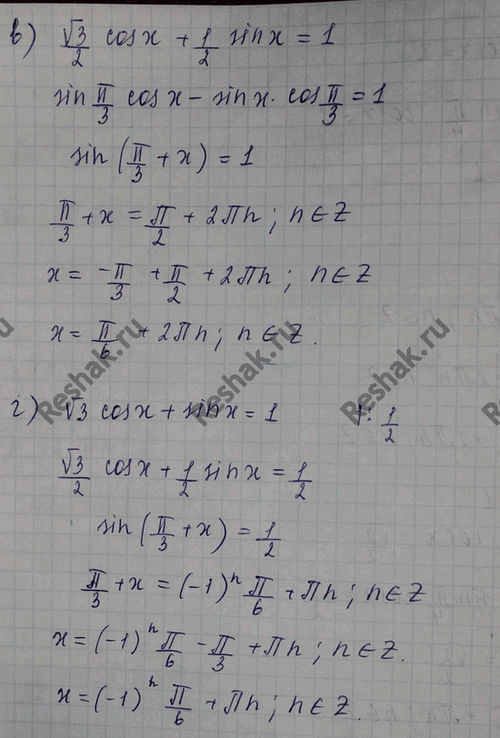 в) √3/2 cosx + 1/2 sinx = 1
sin π/3 cosx - sinx · cos π/3 = 1
sin (π/3 + x) = 1
π/3 + x = π/2 + 2πn ; n ∈ Z
x = -π/3 + π/2 + 2πn ; n ∈ Z
x = π/6 + 2πn ; n ∈ Z.
Reshak.ru Reshak.ru Reshak.ru
г) √3 cosx + sinx = 1 | : 1/2
√3/2 cosx + 1/2 sinx = 1/2
sin (π/3 + x) = 1/2
π/3 + x = (-1)ⁿ π/6 + πn ; n ∈ Z
x = (-1)ⁿ π/6 - π/3 + πn ; n ∈ Z.
x = (-1)ⁿ π/6 + πn ; n ∈ Z.